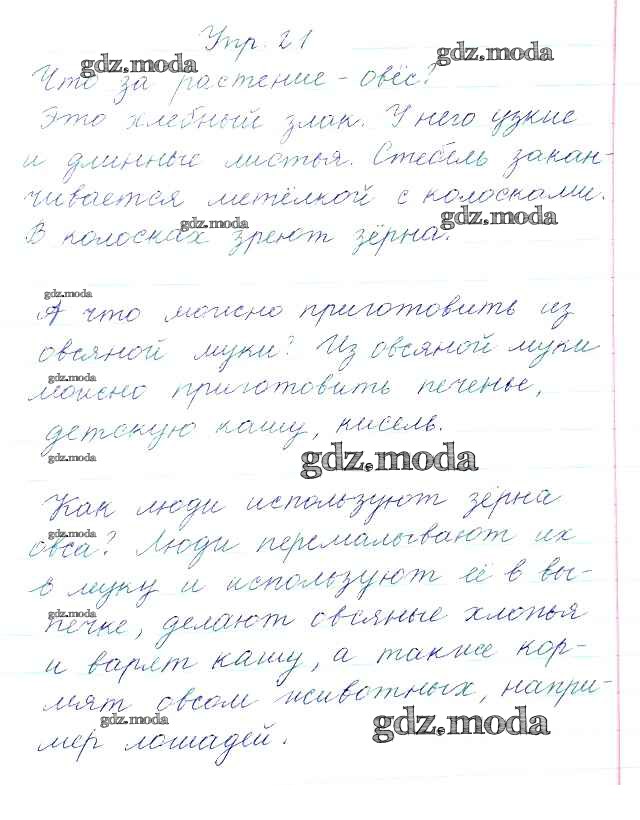 Упр. 21
gdz.moda
gdz.moda
Что за растение - овёс?
Это хлебный злак. У него узкие
и длинные листья. Стебель закан-
чивается метёлкой с колосками.
gdz.moda
gdz.moda
В колосках зреют зёрна.
gdz.moda
А что можно приготовить из
овсяной муки? Из овсяной муки
gdz.moda
можно приготовить печенье,
детскую кашу, кисель.
gdz.moda
gdz.moda
Как люди используют зёрна
gdz.moda
овса? Люди перемалывают их
в муку и используют её в вы-
gdz.moda
печке, делают овсяные хлопья
и варят кашу, а также кор-
мят овсом животных, напри-
gdz.moda
gdz.moda
мер лошадей.